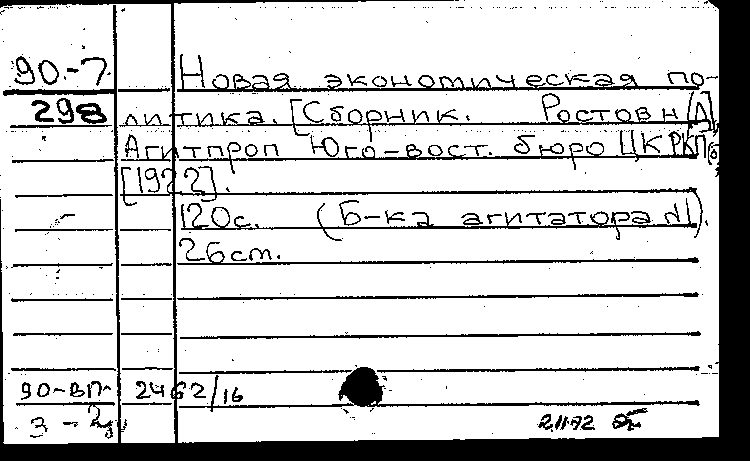 90.-7 Новая экономическая по-
298 литика. [Сборник. Ростов н/Д],
Агитпроп Юго-вост. бюро ЦК РКП(б),
[1922].
120с. (Б-ка агитатора №1).
26см.
90-ВП- 2462/16
3-
2.11.72